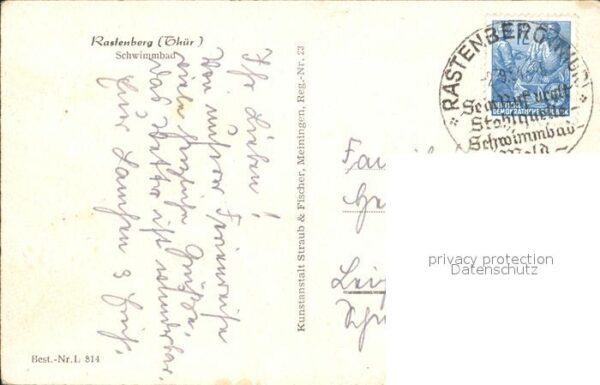 Rastenberg (Thür)
Schwimmbad
Ihr Lieben!
Von unserer Ferienreise
viele herzliche Grüße,
das Wetter ist wunderbar.
Eure
Kunstanstalt Straub & Fischer, Meiningen, Reg.-Nr. 23
Best.-Nr. L 814
RASTENBERG (THÜR)
Schwimmbad
Wald
12
DEUTSCHE
DEMOKRATISCHE REPUBLIK
privacy protection
Datenschutz